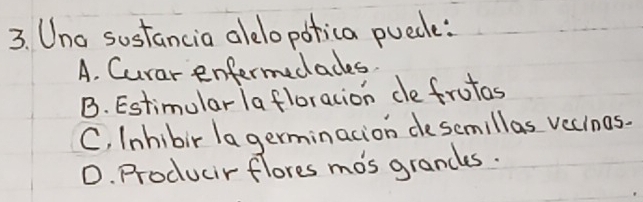 3. Una sustancia alelopática puede:
A. Curar enfermedades.
B. Estimular la floración de frutas
C. Inhibir la germinación de semillas vecinas.
D. Producir flores más grandes.